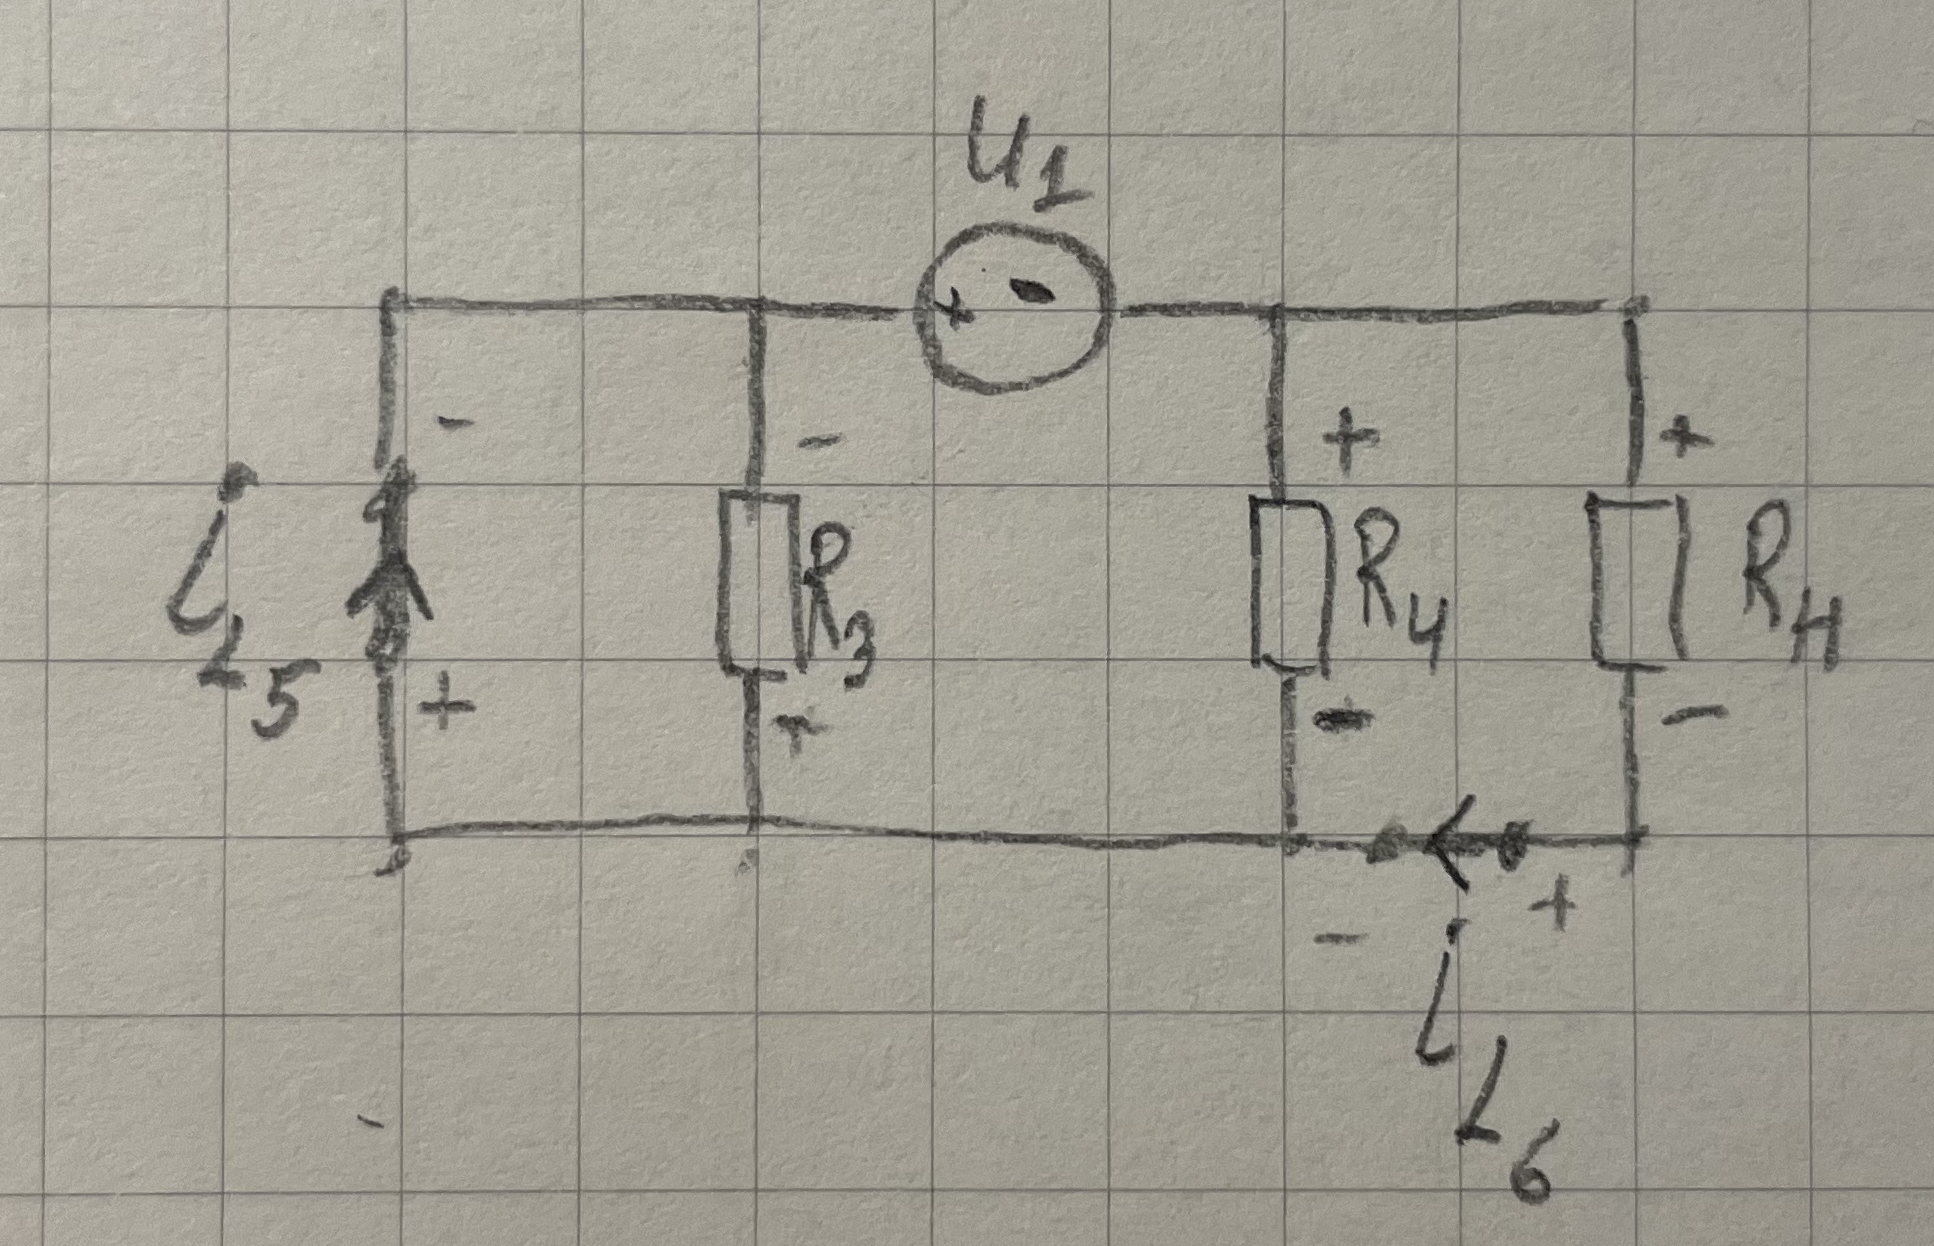 U1
+ -
- - + +
iL5 R3 R4 RH
+ + - -
- +
iL6